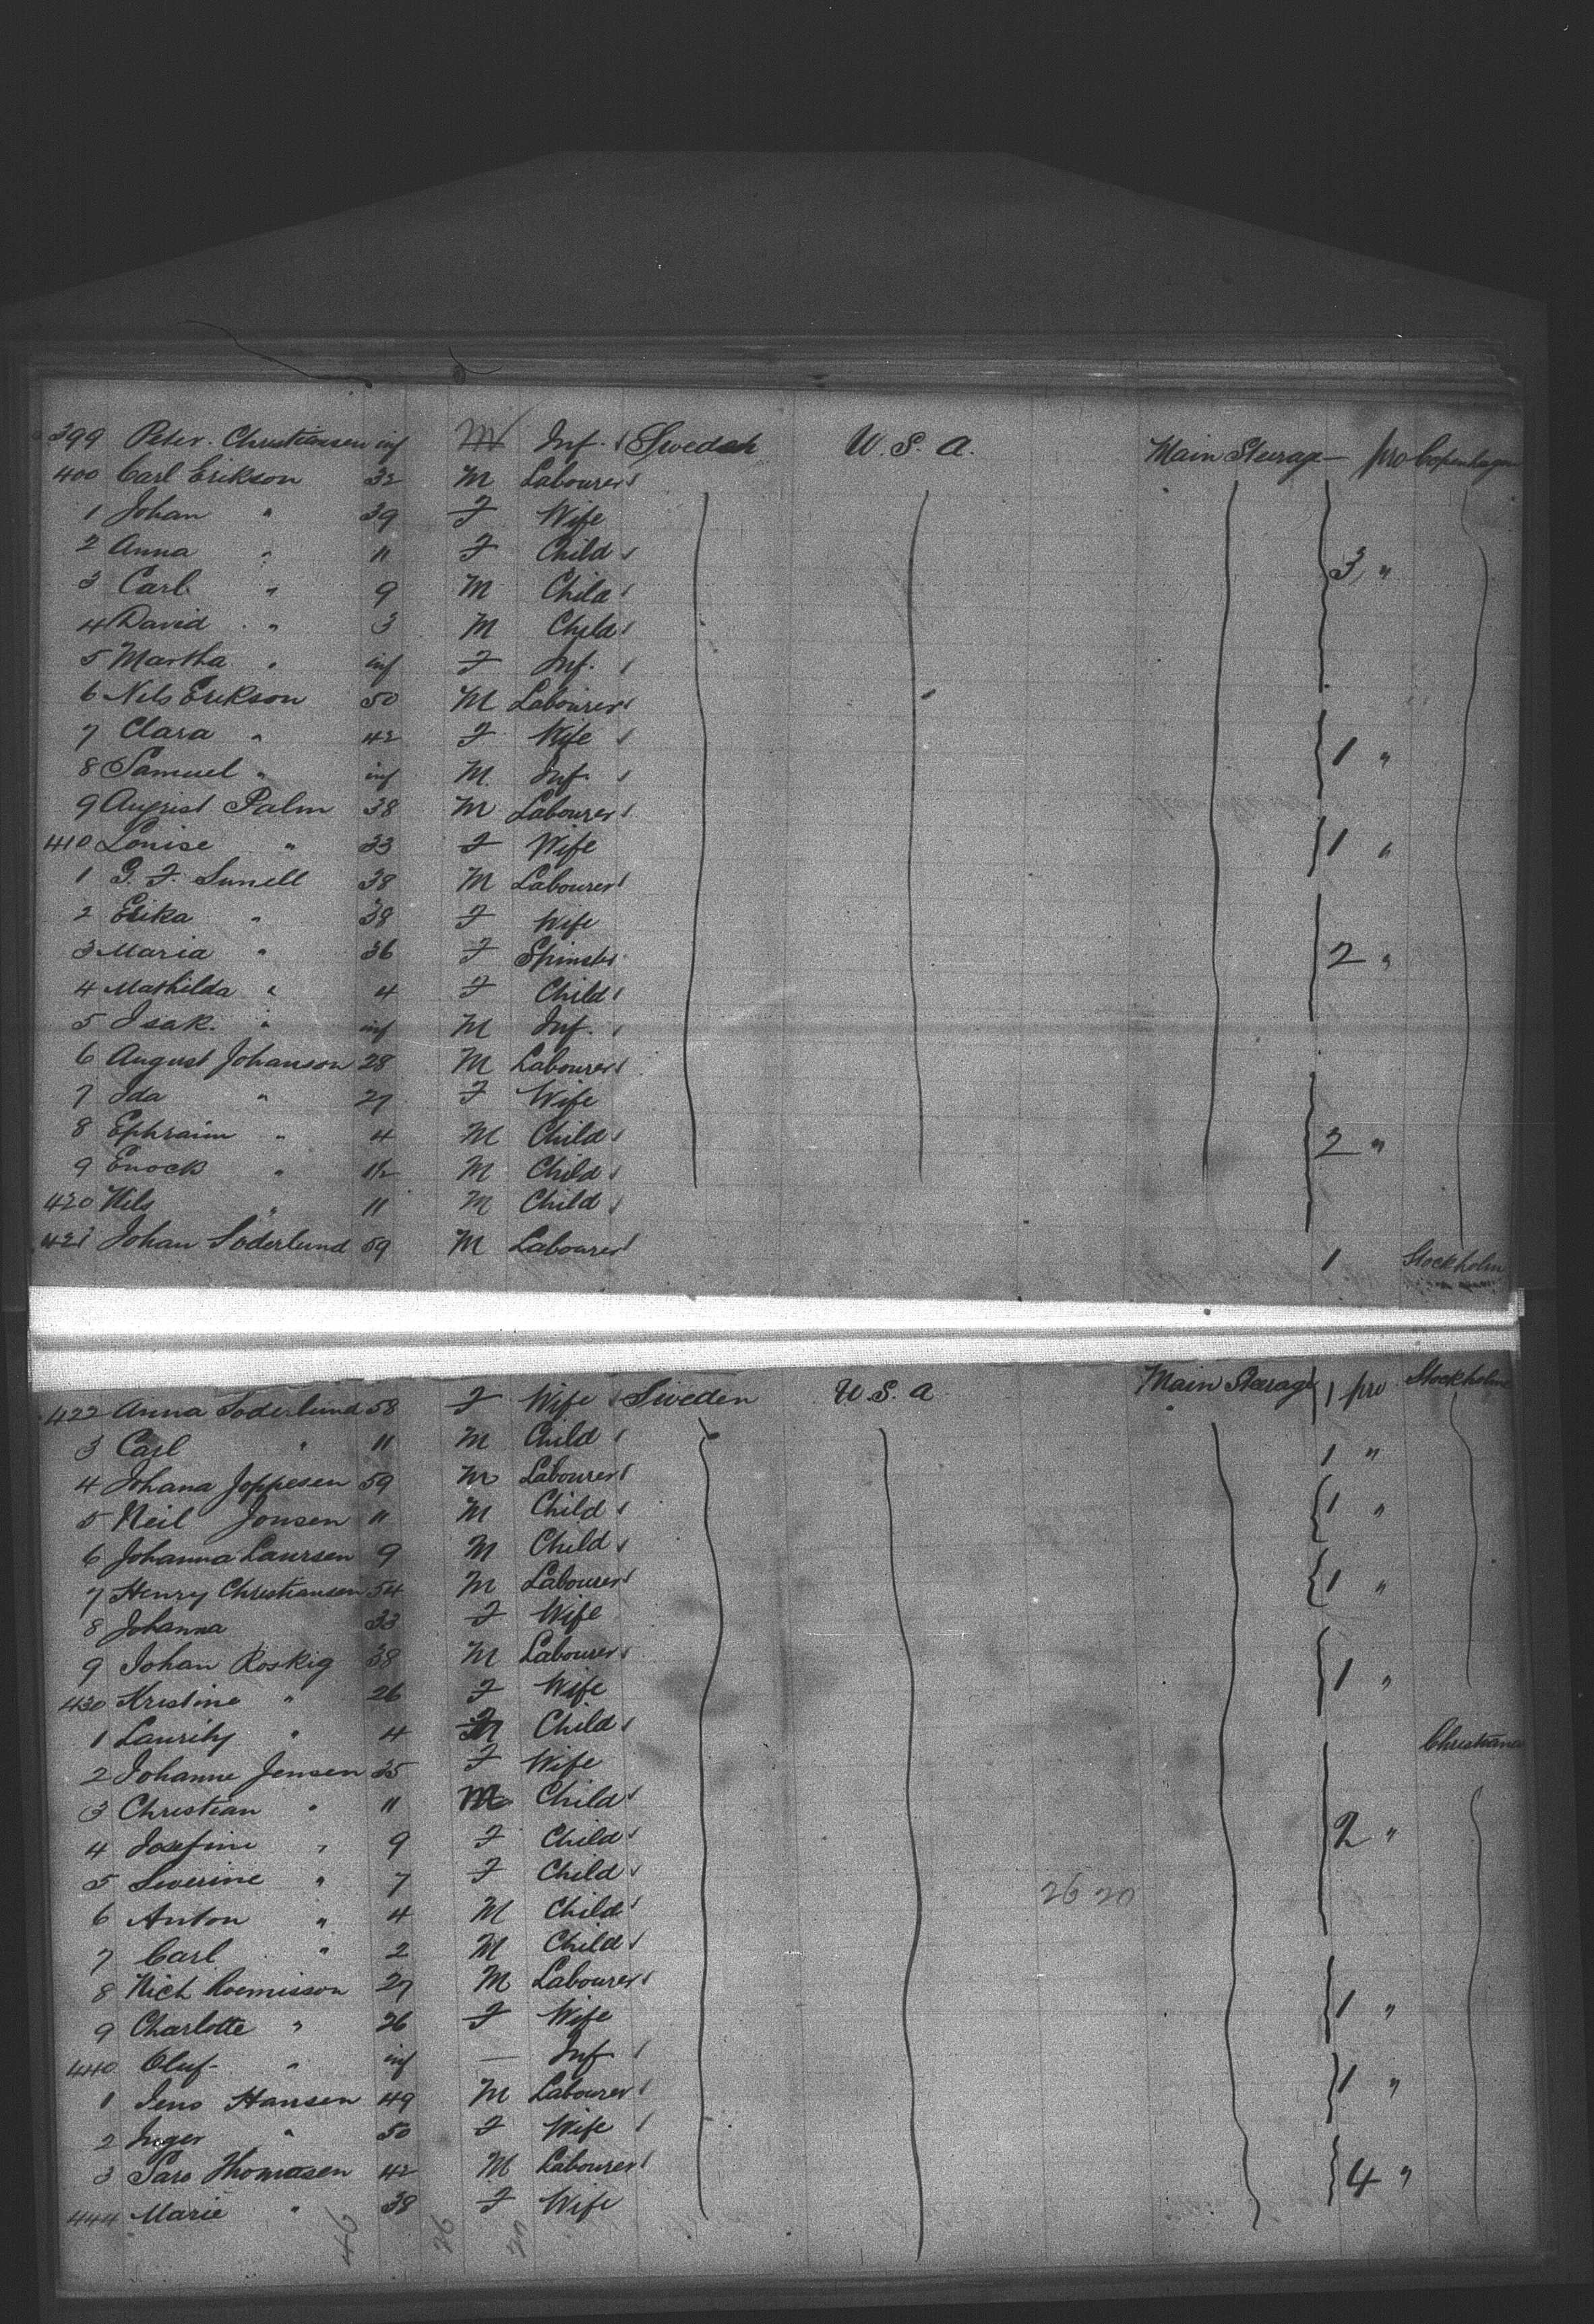 399 Peter. Christiansen inf M Inf. Sweden U. S. A. Main Steerage — pro Copenhagen
400 Carl Erikson 32 M Labourer
1 Johan " 39 F Wife
2 Anna " 11 F Child
3 Carl " 9 M Child 3 "
4 David " 3 M Child
5 Martha " inf F Inf.
6 Nils Erikson 50 M Labourer
7 Clara " 42 F Wife 1 "
8 Samuel " inf M. Inf.
9 August Palm 38 M Labourer
410 Louise " 33 F Wife 1 "
1 G. F. Sunell 38 M Labourer
2 Erika " 38 F Wife
3 Maria " 36 F Spinster 2 "
4 Mathilda " 4 F Child
5 Isak. " inf M Inf.
6 August Johanson 28 M Labourer
7 Ida " 27 F Wife
8 Ephraim " 4 M Child 2 "
9 Enock " 1½ M Child
420 Nils " 11 M Child
421 Johan Soderlund 59 M Labourer 1 Stockholm
422 Anna Soderlund 58 F Wife Sweden U. S. A Main Steerage 1 pro Stockholm
3 Carl " 11 M Child 1 "
4 Johana Joppesen 59 M Labourer
5 Neil Jonsen 11 M Child 1 "
6 Johanna Laursen 9 M Child
7 Henry Christiansen 54 M Labourer 1 "
8 Johanna 33 F Wife
9 Johan Roskig 38 M Labourer
430 Kristine " 26 F Wife 1 "
1 Laurity " 4 M Child Christiana
2 Johanne Jensen 35 F Wife
3 Christian " 11 M Child
4 Josefine " 9 F Child 2 "
5 Severine " 7 F Child 26 20
6 Anton " 4 M Child
7 Carl " 2 M Child
8 Nich Roemisson 27 M Labourer
9 Charlotte " 26 F Wife 1 "
440 Oluf " inf — Inf
1 Jens Hansen 49 M Labourer 1 "
2 Inger " 50 F Wife
3 Lars Thomasen 42 M Labourer 4 "
444 Marie " 38 F Wife
46 26 20